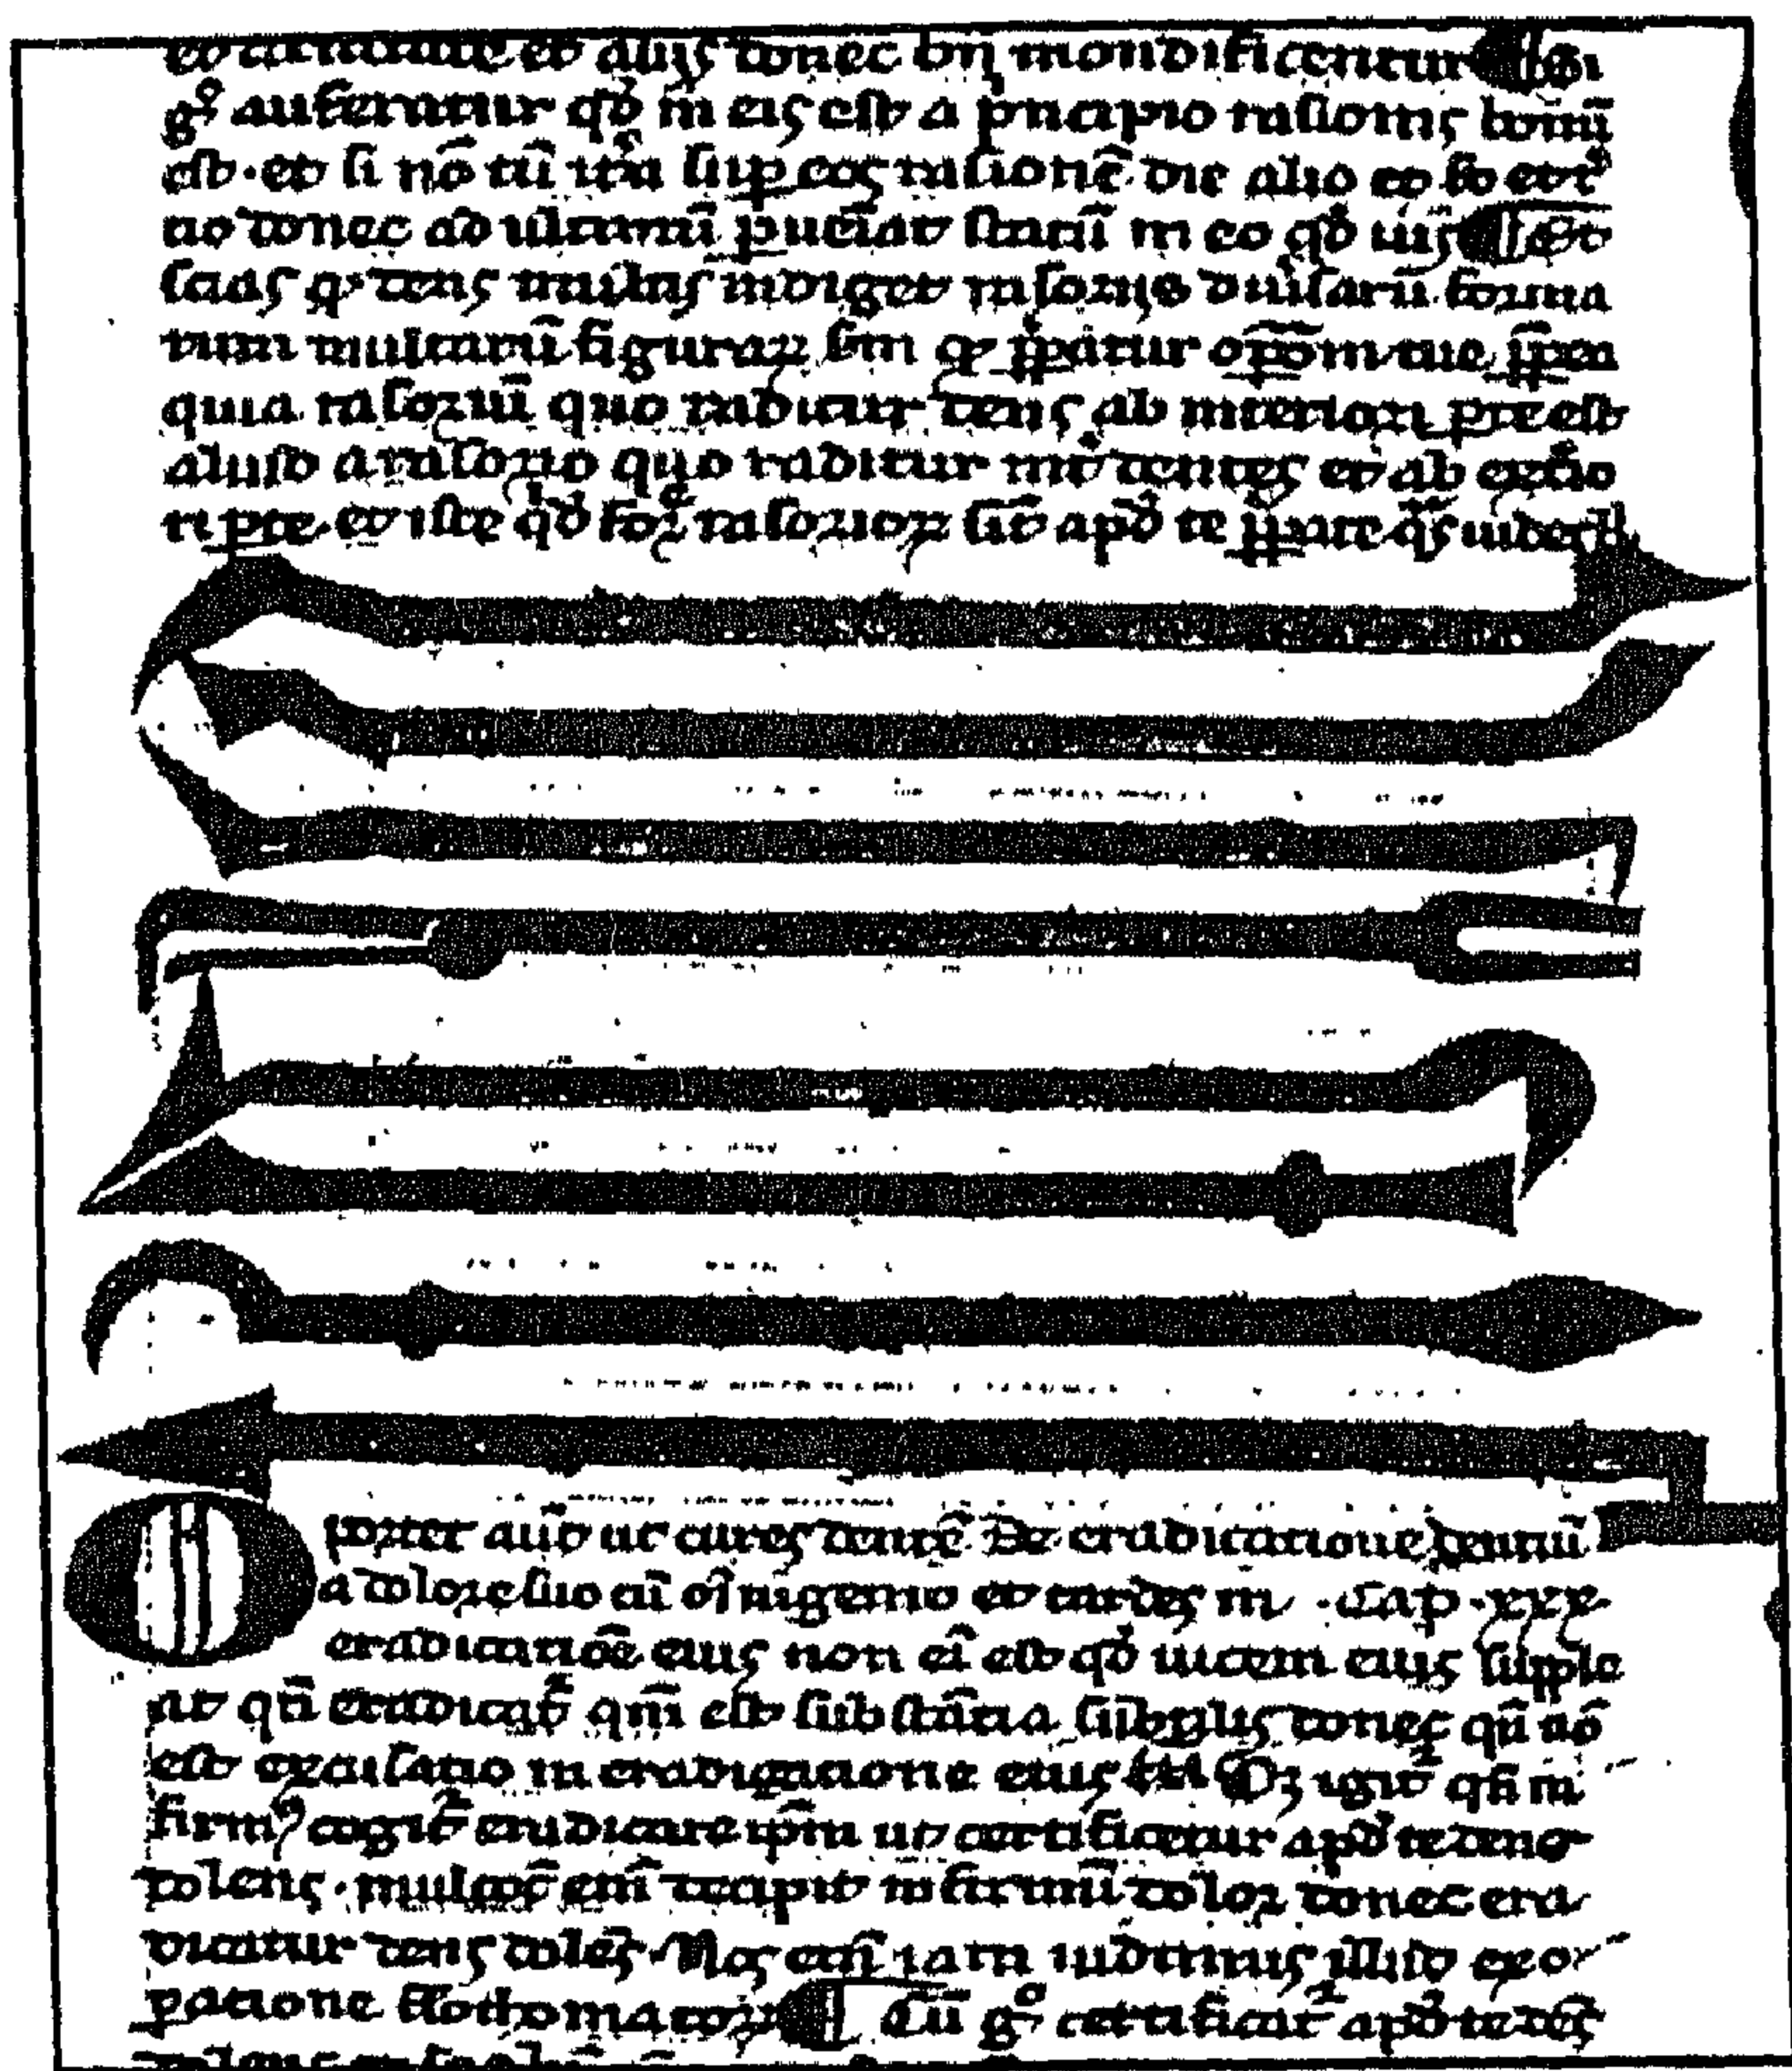 et alijs donec bñ mondificentur ¶ Si
g° auferatur qd̓ in eis est a pncipio rasionis bonū
est · et si nō tū itͣa suꝑ eos rasionē die alio et
tio donec ad ultimū ꝑueniat statū in eo qd̓ uis ¶ Et
scias ꝙ dens indiget rasorijs diuisarū forma
rum multarū figuraꝝ ẜm ꝙ p̄patur tue
quia rasoriū quo raditur dens ab interiori ꝑte est
aliud a rasorio quo raditur int̓ dentes et ab exteio
ri ꝑte · et iste qd̓ rasorioꝝ sīt apd̓ te
portet aūt ut cures dentē De eradicatione dentiū
a dolore suo cū oī ingenio et tardes in · Cap · xxx ·
eradicatiōe eius non eī est qd̓ uicem eius supple
at qn̄ eradicat᷑ qm̄ est substātia sublīis donec qn̄ nō
est excusatio in eradicatione eius Oꝫ igit᷑ qn̄ in
firmꝰ cogit᷑ eradicare ip̄m ut certificetur apd̓ te dens
dolens · multoc̄ eni᷑ decipit infirmū dolor donec era
dicatur dens dolēs · Nos em̄ iam uidimus illud ex o
ꝑatione flothomatoꝝ ¶ Cū g° certificat᷑ apd̓ te dēs